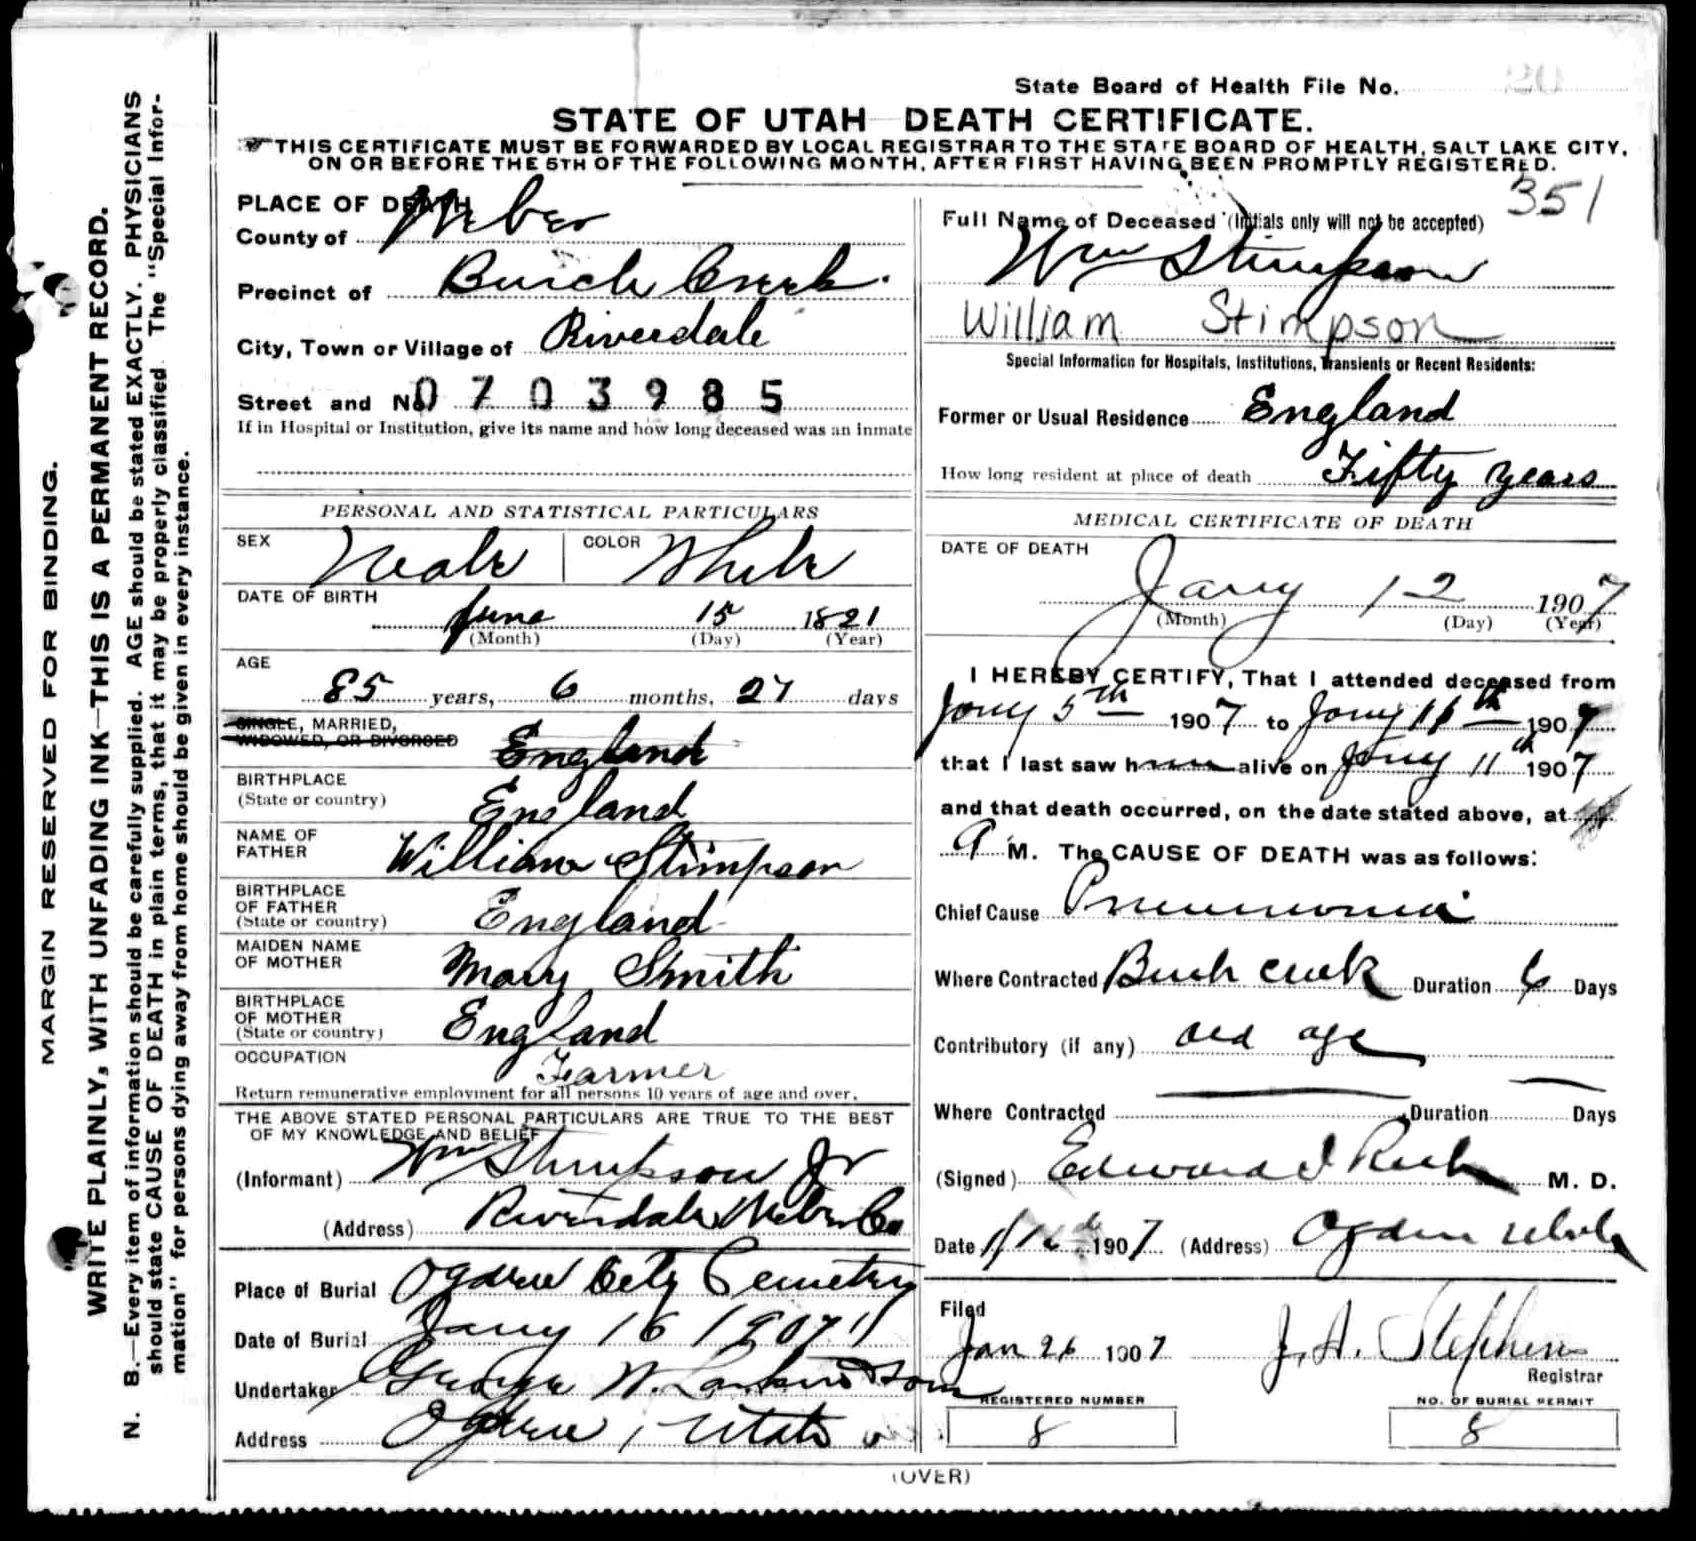 MARGIN RESERVED FOR BINDING.
WRITE PLAINLY, WITH UNFADING INK—THIS IS A PERMANENT RECORD.
N. B.—Every item of information should be carefully supplied. AGE should be stated EXACTLY. PHYSICIANS
should state CAUSE OF DEATH in plain terms, that it may be properly classified. The "Special Infor-
mation" for persons dying away from home should be given in every instance.
State Board of Health File No.
STATE OF UTAH—DEATH CERTIFICATE.
THIS CERTIFICATE MUST BE FORWARDED BY LOCAL REGISTRAR TO THE STATE BOARD OF HEALTH, SALT LAKE CITY,
ON OR BEFORE THE 5TH OF THE FOLLOWING MONTH, AFTER FIRST HAVING BEEN PROMPTLY REGISTERED.
351
PLACE OF DEATH
County of Weber
Precinct of Burch Creek.
City, Town or Village of Riverdale
Street and No. 0703985
If in Hospital or Institution, give its name and how long deceased was an inmate
PERSONAL AND STATISTICAL PARTICULARS
SEX Male COLOR White
DATE OF BIRTH
June 15 1821
(Month) (Day) (Year)
AGE
85 years, 6 months, 27 days
SINGLE, MARRIED,
WIDOWED, OR DIVORCED England
BIRTHPLACE
(State or country) England
NAME OF
FATHER William Stimpson
BIRTHPLACE
OF FATHER
(State or country) England
MAIDEN NAME
OF MOTHER Mary Smith
BIRTHPLACE
OF MOTHER
(State or country) England
OCCUPATION Farmer
Return remunerative employment for all persons 10 years of age and over.
THE ABOVE STATED PERSONAL PARTICULARS ARE TRUE TO THE BEST
OF MY KNOWLEDGE AND BELIEF
(Informant) Wm Stimpson Jr
(Address) Riverdale Weber Co
Place of Burial Ogden City Cemetery
Date of Burial Jany 16 1907
Undertaker George W. Larkin & Son
Address Ogden, Utah
Full Name of Deceased (Initials only will not be accepted)
Wm Stimpson
William Stimpson
Special Information for Hospitals, Institutions, Transients or Recent Residents:
Former or Usual Residence England
How long resident at place of death Fifty years
MEDICAL CERTIFICATE OF DEATH
DATE OF DEATH
Jany 12 1907
(Month) (Day) (Year)
I HEREBY CERTIFY, That I attended deceased from
Jany 5th 1907 to Jany 11th 1907
that I last saw him alive on Jany 11th 1907
and that death occurred, on the date stated above, at
9 M. The CAUSE OF DEATH was as follows:
Chief Cause Pneumonia
Where Contracted Burch creek Duration 6 Days
Contributory (if any) old age
Where Contracted Duration Days
(Signed) Edward I Rich M. D.
Date 1907 (Address) Ogden Utah
Filed
Jan 26 1907 J. A. Stephens
Registrar
REGISTERED NUMBER NO. OF BURIAL PERMIT
8 8
(OVER)